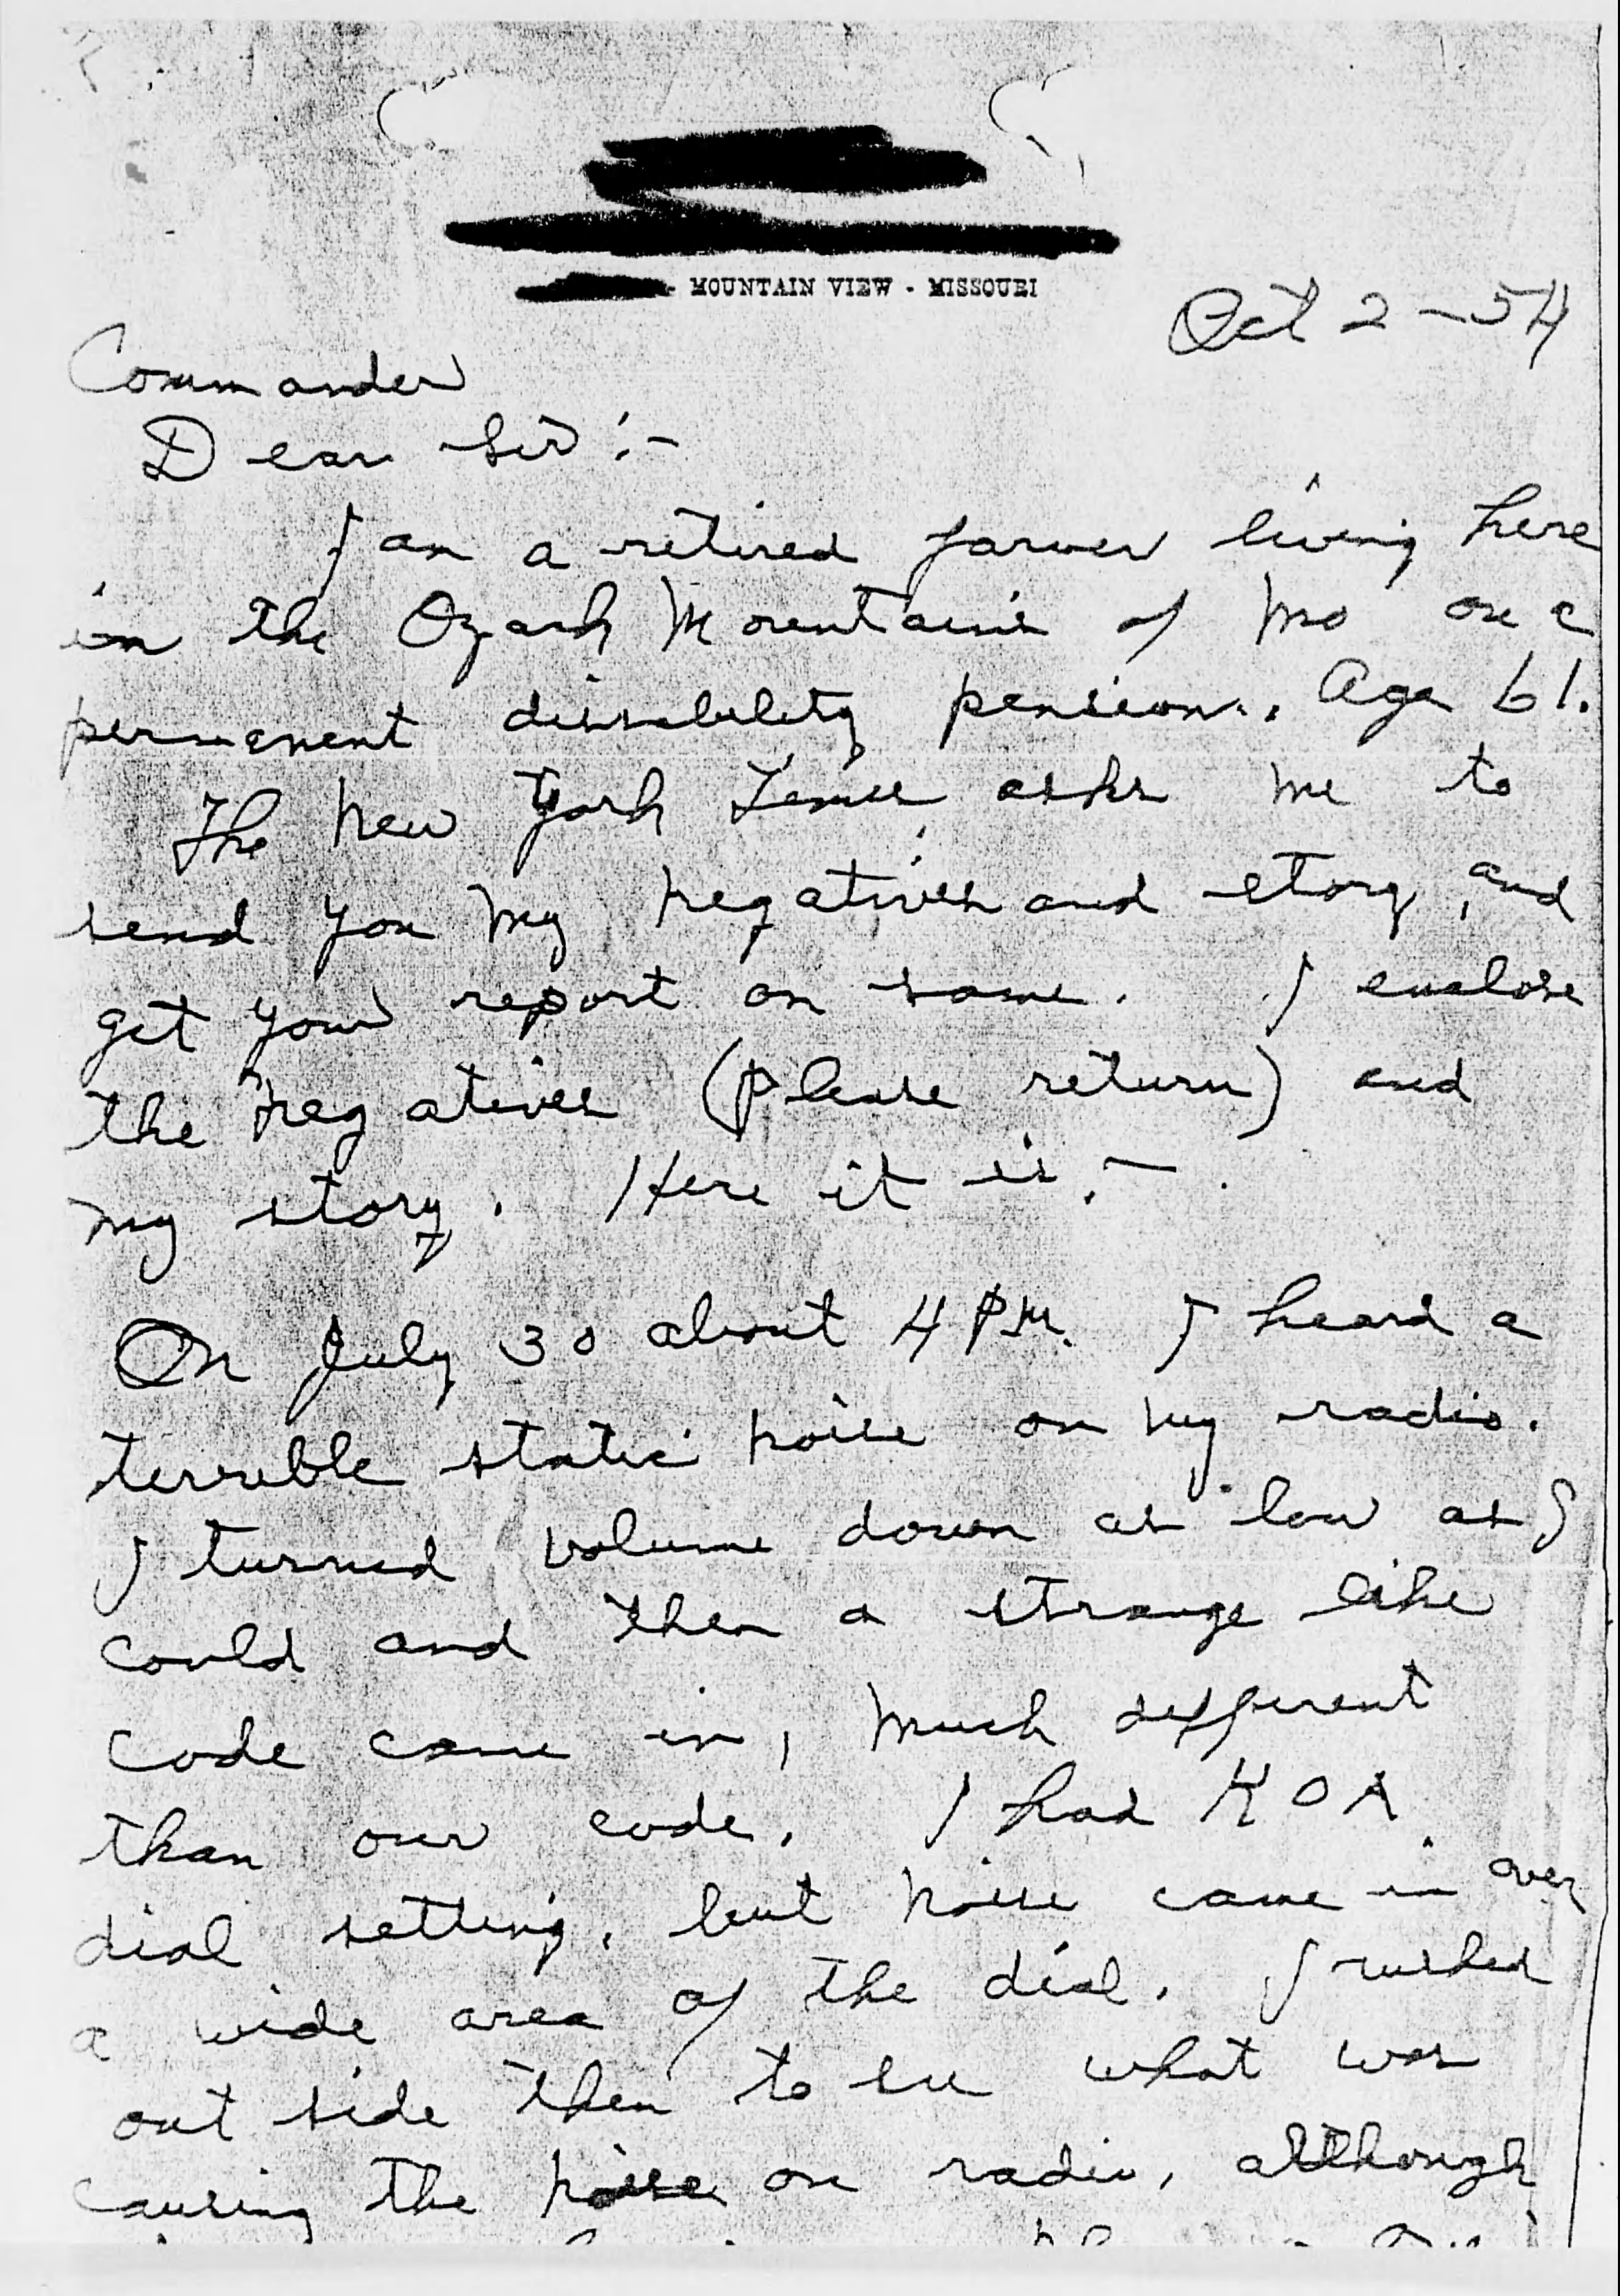 - MOUNTAIN VIEW - MISSOURI
Oct 2 - 54
Commander
Dear Sir :-
I am a retired farmer living here
in the Ozark Mountains of Mo on a
permanent dissability pension. Age 61.
The New York Times asks me to
send you my negatives and story, and
get your report on same. I enclose
the negatives (please return) and
my story. Here it is, -
On July 30 about 4 PM. I heard a
terrible static noise on my radio.
I turned volume down as low as I
could and then a strange like
code came in, much different
than our code. I had KOA
dial setting, but noise came in over
a wide area of the dial. I rushed
out side then to see what was
causing the noise on radio, although